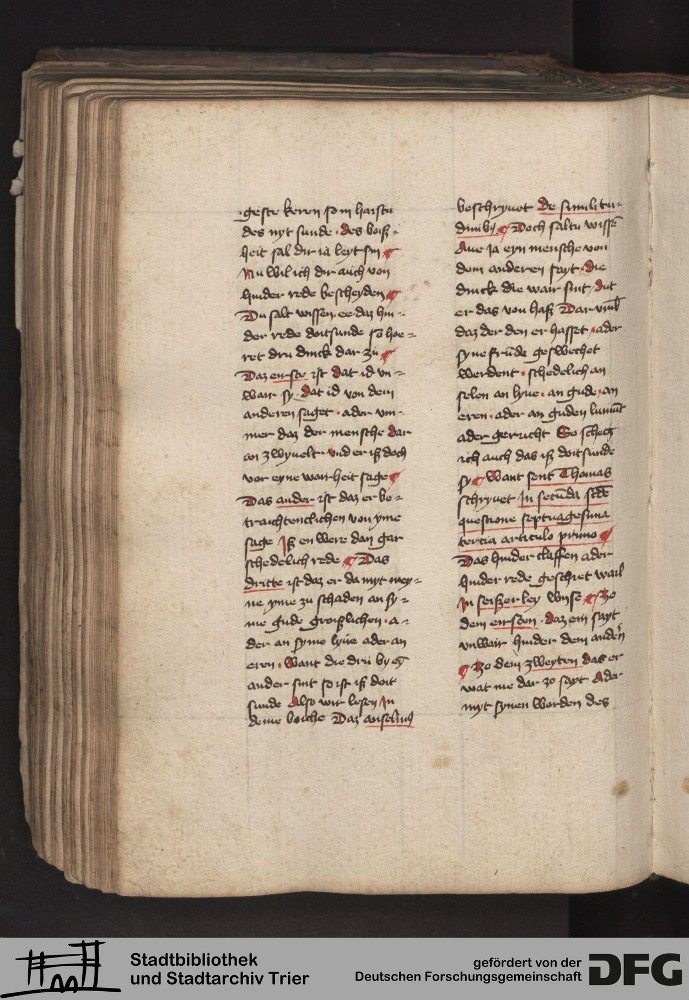 geste keren so in haistu
des nyt sunde · des boiß-
heit sal dir ia leyt sin ¶
Nu wil ich dir auch von
hinder rede bescheyden ¶
Du salt wissen ee daz hin-
der rede doitsunde so hoe-
ret dru dinck dar zu ¶
Daz eirste ist dat id vn-
wair sy · dat id von dem
anderen saget · ader vm-
mer daz der mensche dar
an zwyuelt · vnd er iß doch
vor eyne wairheit sage ¶
Das ander ist daz er be-
trachtenclichen von yme
sage Iß en were dan gar
schedelich rede ¶ Das
dritte ist daz er da myt mey-
ne yme zu schaden an sy-
me gude groißlichen · a-
der an syme lyue ader an
eren · Want die dru by ey
ander sint so ist iß doit
sunde Also wir lesen In
deme boiche Daz anselmus
beschryuet de similitu-
dinibus ¶ Doch saltu wissen
Aue ia eyn mensche von
dem anderen sayt · die
dinck die wair sint · dut
er das von haß Dar vmb
daz der den er hasset · ader
syne frunde geswechet
werdent · schedelich an
selen an lyue · an gude · an
eren · ader an guden lumut
ader gerucht So sprech
ich auch das iß doitsunde
sy ¶ Want sent Thomas
schryuet in secunda secunde
questione septuagesima
tertia articulo primo ¶
Das hinder claffen ader
hinder rede geschiet wail
In seißerley wyse ¶ Zo
dem eirsten · daz ein sayt
vnwair hinder dem anderen
¶ Zo dem zweyten das er
wat me dar zo sayt Ader
myt synen worden des
Stadtbibliothek
und Stadtarchiv Trier
gefördert von der
Deutschen Forschungsgemeinschaft
DFG